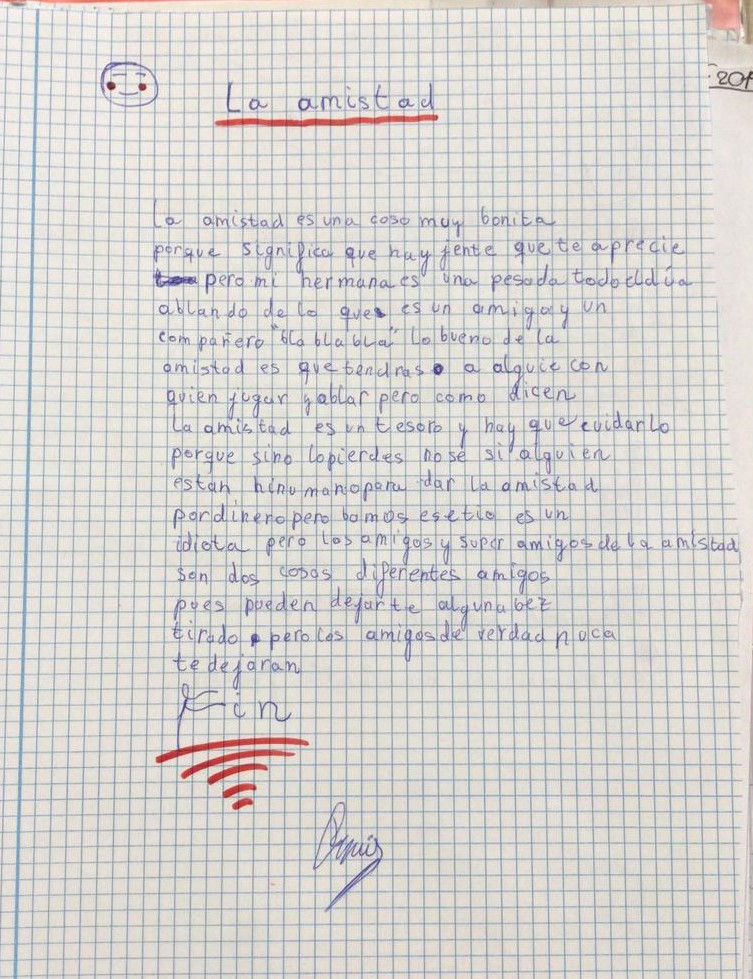 201
La amistad
La amistad es una cosa muy bonita
porque significa que hay jente que te aprecie
pero mi hermana es una pesada todo el día
ablando de lo que es un amigo y un
compañero "bla bla bla" lo bueno de la
amistad es que tendras a alguie con
quien jugar y ablar pero como dicen
la amistad es un tesoro y hay que cuidarlo
porque sino lo pierdes no se si alguien
es tan hinumano para dar la amistad
por dinero pero bamos ese tio es un
idiota pero los amigos y super amigos de la amistad
son dos cosas diferentes amigos
pues pueden dejarte alguna bez
tirado pero los amigos de verdad nuca
te dejaran
Fin